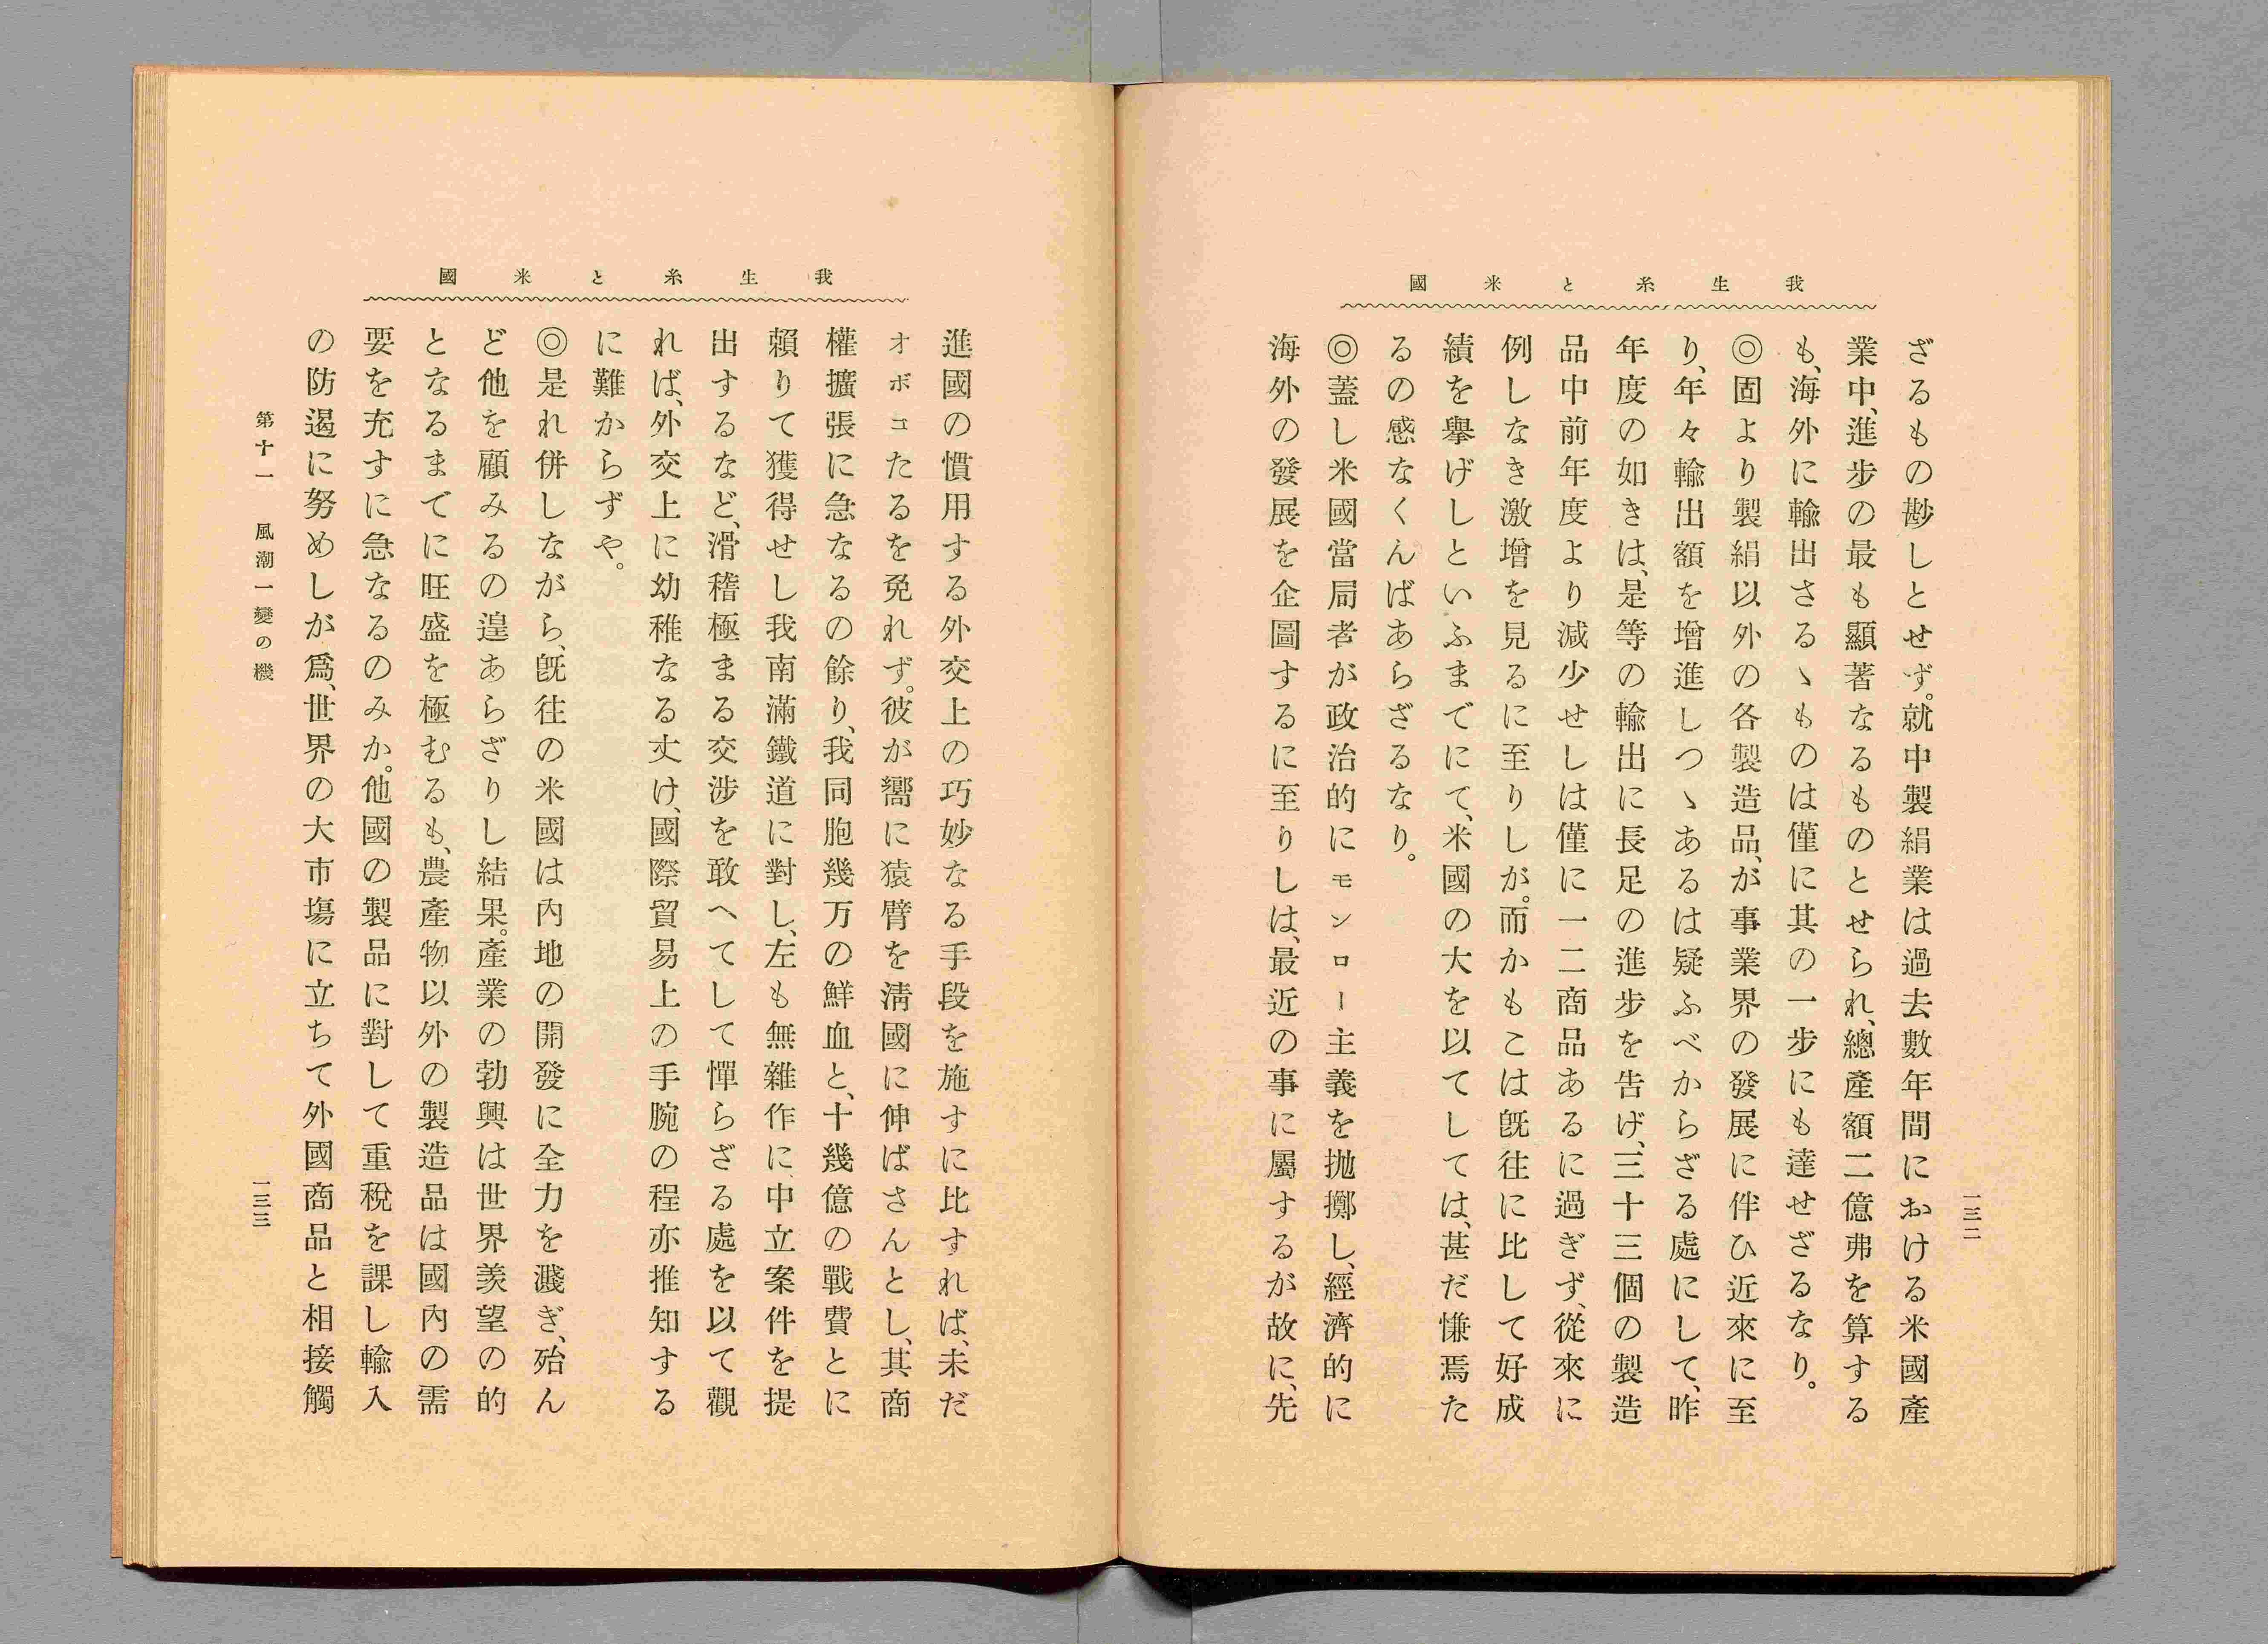 我生糸と米國
一三二
ざるもの尠しとせず。就中製絹業は過去數年間における米國產
業中、進步の最も顯著なるものとせられ、總產額二億弗を算する
も、海外に輸出さるゝものは僅に其の一步にも達せざるなり。
◎固より製絹以外の各製造品、が事業界の發展に伴ひ近來に至
り、年々輸出額を增進しつゝあるは疑ふべからざる處にして、昨
年度の如きは、是等の輸出に長足の進步を告げ、三十三個の製造
品中前年度より減少せしは僅に一二商品あるに過ぎず、從來に
例しなき激增を見るに至りしが。而かもこは旣往に比して好成
績を擧げしといふまでにて、米國の大を以てしては、甚だ慊焉た
るの感なくんばあらざるなり。
◎蓋し米國當局者が政治的にモンロー主義を拋擲し、經濟的に
海外の發展を企圖するに至りしは、最近の事に屬するが故に、先
我生糸と米國
進國の慣用する外交上の巧妙なる手段を施すに比すれば、未だ
オボコたるを免れず。彼が嚮に猿臂を淸國に伸ばさんとし、其商
權擴張に急なるの餘り、我同胞幾万の鮮血と、十幾億の戰費とに
賴りて獲得せし我南滿鐵道に對し、左も無雜作に、中立案件を提
出するなど、滑稽極まる交涉を敢へてして憚らざる處を以て觀
れば、外交上に幼稚なる丈け、國際貿易上の手腕の程亦推知する
に難からずや。
◎是れ併しながら、旣往の米國は內地の開發に全力を濺ぎ、殆ん
ど他を顧みるの遑あらざりし結果。產業の勃興は世界羨望の的
となるまでに旺盛を極むるも、農產物以外の製造品は國內の需
要を充すに急なるのみか。他國の製品に對して重稅を課し輸入
の防遏に努めしが爲、世界の大市場に立ちて外國商品と相接觸
第十一 風潮一變の機
一三三